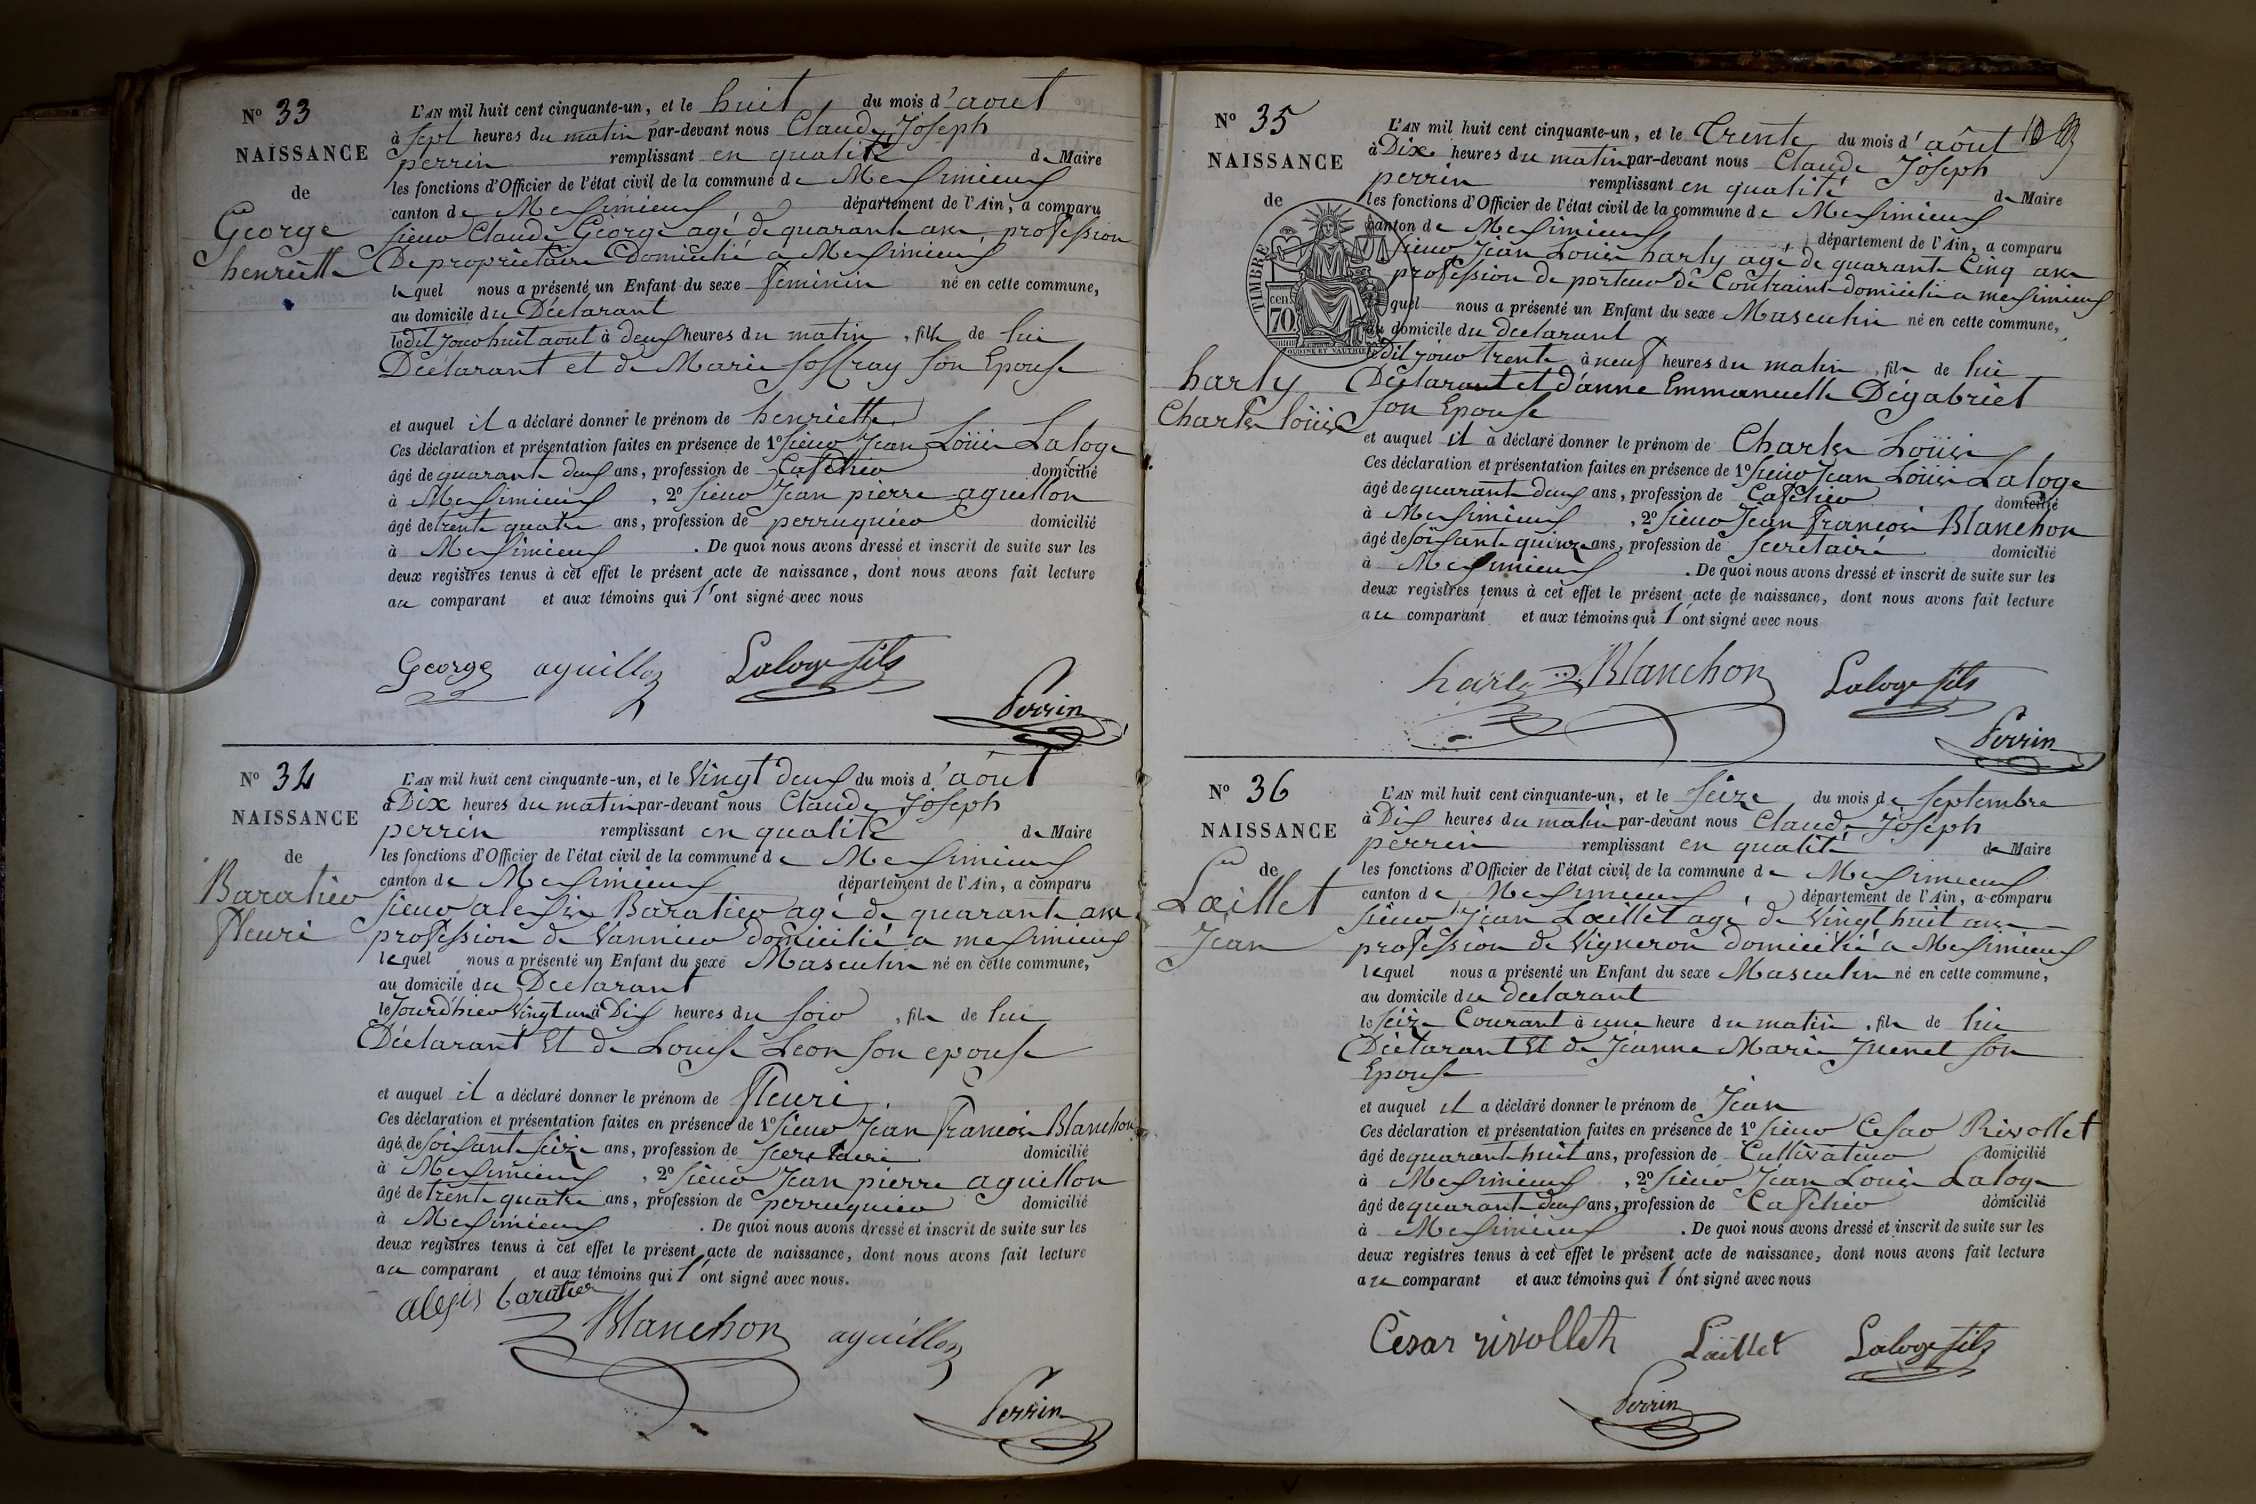 N° 33
NAISSANCE
de
George
henriette
L'AN mil huit cent cinquante-un, et le huit du mois d'aout
à sept heures du matin par-devant nous Claude Joseph
perrin remplissant en qualité de Maire
les fonctions d'Officier de l'état civil de la commune de Meximieux
canton de Meximieux département de l'Ain, a comparu
sieur Claude George agé de quarante ans, profession
De propriétaire Domicilié a Meximieux
lequel nous a présenté un Enfant du sexe Feminin né en cette commune,
au domicile du Déclarant
ledit jour huit aout à deux heures du matin, fille de lui
Déclarant et de Marie Soffray son Epouse
et auquel il a déclaré donner le prénom de henriette
Ces déclaration et présentation faites en présence de 1° sieur Jean Loüis Laloge
âgé de quarante deux ans, profession de Caffetier domicilié
à Meximieux, 2° sieur Jean pierre aguillon
âgé de trente quatre ans, profession de perruquier domicilié
à Meximieux. De quoi nous avons dressé et inscrit de suite sur les
deux registres tenus à cet effet le présent acte de naissance, dont nous avons fait lecture
au comparant et aux témoins qui l'ont signé avec nous
George aguillon Laloge fils
Perrin
N° 34
NAISSANCE
de
Baratier
fleuri
L'AN mil huit cent cinquante-un, et le Vingt deux du mois d'aout
à Dix heures du matin par-devant nous Claude Joseph
perrin remplissant en qualité de Maire
les fonctions d'Officier de l'état civil de la commune de Meximieux
canton de Meximieux département de l'Ain, a comparu
sieur alexis Baratier agé de quarante ans
profession de Vannier domicilié a meximieux
lequel nous a présenté un Enfant du sexe Masculin né en cette commune,
au domicile du Declarant
le Jourd'hier Vingt un à Dix heures du soir, fils de lui
Déclarant Et de Louise Leon son epouse
et auquel il a déclaré donner le prénom de fleuri
Ces déclaration et présentation faites en présence de 1° sieur Jean François Blanchon
âgé de soixante seize ans, profession de secretaire domicilié
à Meximieux, 2° sieur Jean pierre aguillon
âgé de trente quatre ans, profession de perruquier domicilié
à Meximieux. De quoi nous avons dressé et inscrit de suite sur les
deux registres tenus à cet effet le présent acte de naissance, dont nous avons fait lecture
au comparant et aux témoins qui l'ont signé avec nous.
alexis baratier
Blanchon aguillon
Perrin
N° 35
NAISSANCE
de
TIMBRE
cent. 70.
harly
Charles loüis
L'AN mil huit cent cinquante-un, et le Trente du mois d'août
à Dix heures du matin par-devant nous Claude Joseph
perrin remplissant en qualité de Maire
les fonctions d'Officier de l'état civil de la commune de Meximieux
canton de Meximieux département de l'Ain, a comparu
sieur Jean Louis harly agé de quarante Cinq ans
profession de porteur de Contrainte domicilié a meximieux
quel nous a présenté un Enfant du sexe Masculin né en cette commune,
au domicile du declarant
ledit jour trente à neuf heures du matin, fils de lui
Déclarant et d'anne Emmanuelle Dégabriel
son Epouse
et auquel il a déclaré donner le prénom de Charles Loüis
Ces déclaration et présentation faites en présence de 1° sieur Jean Loüis Laloge
âgé de quarante deux ans, profession de Caffetier domicilié
à Meximieux, 2° sieur Jean François Blanchon
âgé de soixante quinze ans, profession de secretaire domicilié
à Meximieux. De quoi nous avons dressé et inscrit de suite sur les
deux registres tenus à cet effet le présent acte de naissance, dont nous avons fait lecture
au comparant et aux témoins qui l'ont signé avec nous
harly Blanchon Laloge fils
Perrin
N° 36
NAISSANCE
de
Lœillet
Jean
L'AN mil huit cent cinquante-un, et le seize du mois de septembre
à Dix heures du matin par-devant nous Claude Joseph
perrin remplissant en qualité de Maire
les fonctions d'Officier de l'état civil de la commune de Meximieux
canton de Meximieux département de l'Ain, a comparu
sieur Jean Lœillet agé de Vingt huit ans
profession de Vigneron domicilié a Meximieux
lequel nous a présenté un Enfant du sexe Masculin né en cette commune,
au domicile du declarant
le seize Courant à une heure du matin, fils de lui
Déclarant Et de Jeanne Marie Juenet son
Epouse
et auquel il a déclaré donner le prénom de Jean
Ces déclaration et présentation faites en présence de 1° sieur Cesar Rivollet
âgé de quarante huit ans, profession de Cultivateur domicilié
à Meximieux, 2° sieur Jean Louis Laloge
âgé de quarante deux ans, profession de Caffetier domicilié
à Meximieux. De quoi nous avons dressé et inscrit de suite sur les
deux registres tenus à cet effet le présent acte de naissance, dont nous avons fait lecture
au comparant et aux témoins qui l'ont signé avec nous
Cèsar rivolleth Lœillet Laloge fils
Perrin